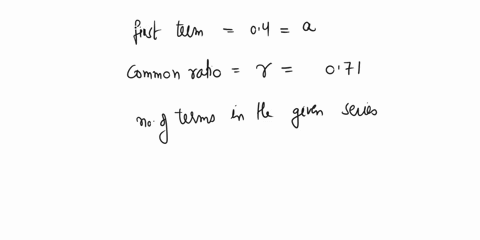 first term = 0.4 = a
common ratio = r = 0.71
no. of terms in the given series